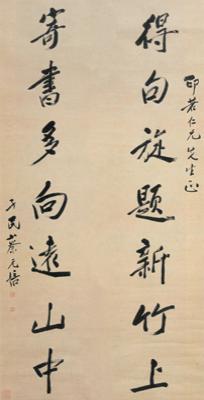 若仁兄先生正
得句旋題新竹上
寄書多向遠山中
孑民蔡元培